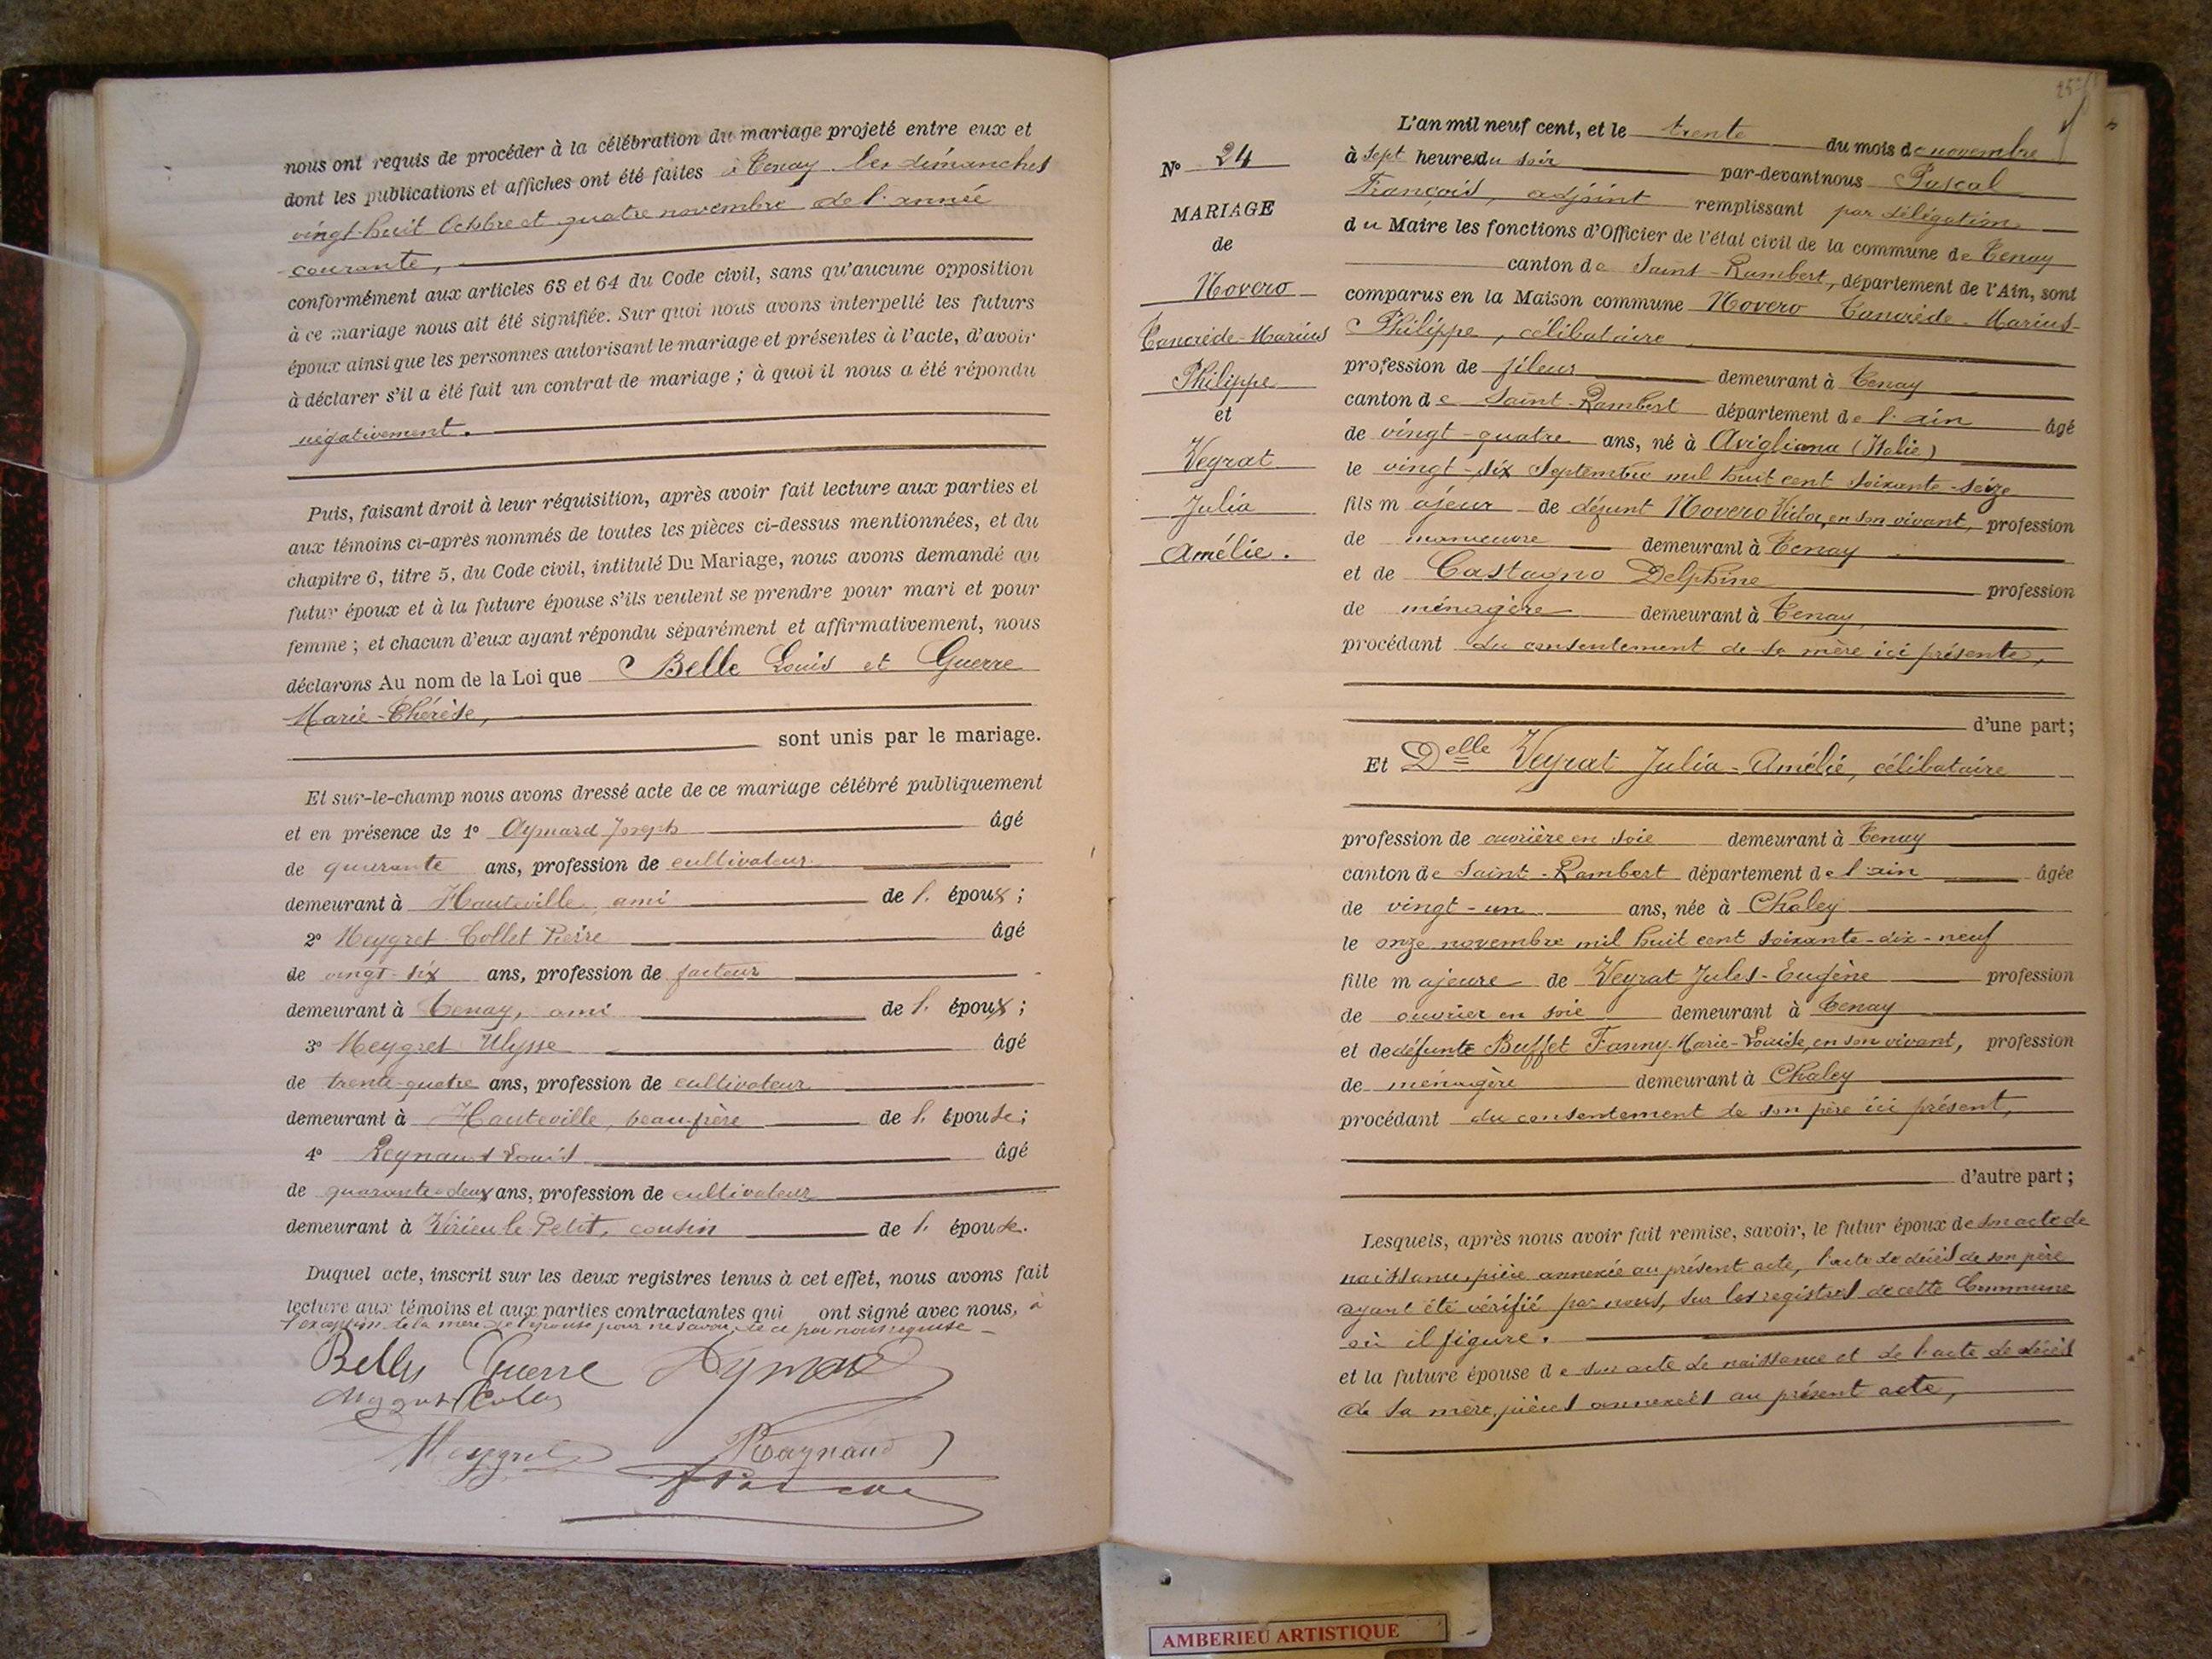 nous ont requis de procéder à la célébration du mariage projeté entre eux et
dont les publications et affiches ont été faites à Tenay les dimanches
vingt-huit Octobre et quatre novembre de l'année
courante,
conformément aux articles 63 et 64 du Code civil, sans qu'aucune opposition
à ce mariage nous ait été signifiée. Sur quoi nous avons interpellé les futurs
époux ainsi que les personnes autorisant le mariage et présentes à l'acte, d'avoir
à déclarer s'il a été fait un contrat de mariage ; à quoi il nous a été répondu
négativement.
Puis, faisant droit à leur réquisition, après avoir fait lecture aux parties et
aux témoins ci-après nommés de toutes les pièces ci-dessus mentionnées, et du
chapitre 6, titre 5, du Code civil, intitulé Du Mariage, nous avons demandé au
futur époux et à la future épouse s'ils veulent se prendre pour mari et pour
femme ; et chacun d'eux ayant répondu séparément et affirmativement, nous
déclarons Au nom de la Loi que Belle Louis et Guerre
Marie-Thérèse,
sont unis par le mariage.
Et sur-le-champ nous avons dressé acte de ce mariage célébré publiquement
et en présence de 1° Aymard Joseph âgé
de quarante ans, profession de cultivateur
demeurant à Hauteville, ami de l. époux ;
2° Meygret-Collet Pierre âgé
de vingt-six ans, profession de facteur
demeurant à Tenay, ami de l. époux ;
3° Meygret Ulysse âgé
de trente-quatre ans, profession de cultivateur
demeurant à Hauteville, beau-frère de l. épouse ;
4° Reynaud Louis âgé
de quarante-deux ans, profession de cultivateur
demeurant à Virieu-le-Petit, cousin de l. épouse.
Duquel acte, inscrit sur les deux registres tenus à cet effet, nous avons fait
lecture aux témoins et aux parties contractantes qui ont signé avec nous, à
l'exception de la mère de l'épouse pour ne savoir, de ce par nous requise
Belly Guerre Aymard
Meygret Collet
Meygret Raynaud
N° 24
MARIAGE
de
Novero
Tancrède-Marius
Philippe
et
Veyrat
Julia
Amélie.
L'an mil neuf cent, et le trente du mois de novembre
à sept heures du soir par-devant nous Pascal
François, adjoint remplissant par délégation
du Maire les fonctions d'Officier de l'état civil de la commune de Tenay
canton de Saint-Rambert, département de l'Ain, sont
comparus en la Maison commune Novero Tancrède-Marius-
Philippe, célibataire,
profession de fileur demeurant à Tenay
canton de Saint-Rambert département de l'ain âgé
de vingt-quatre ans, né à Avigliana (Italie)
le vingt-six Septembre mil huit cent soixante-seize
fils majeur de défunt Novero Victor, en son vivant, profession
de manœuvre demeurant à Tenay
et de Castagno Delphine profession
de ménagère demeurant à Tenay,
procédant du consentement de sa mère ici présente,
d'une part ;
Et Delle Veyrat Julia-Amélie, célibataire
profession de ouvrière en soie demeurant à Tenay
canton de Saint-Rambert département de l'ain âgée
de vingt-un ans, née à Chaley
le onze novembre mil huit cent soixante-dix-neuf
fille majeure de Veyrat Jules-Eugène profession
de ouvrier en soie demeurant à Tenay
et de défunte Buffet Fanny-Marie-Louise, en son vivant, profession
de ménagère demeurant à Chaley
procédant du consentement de son père ici présent,
d'autre part ;
Lesquels, après nous avoir fait remise, savoir, le futur époux de son acte de
naissance, pièce annexée au présent acte, l'acte de décès de son père
ayant été vérifié par nous, sur les registres de cette Commune
où il figure.
et la future épouse de son acte de naissance et de l'acte de décès
de sa mère, pièces annexées au présent acte,
AMBERIEU ARTISTIQUE